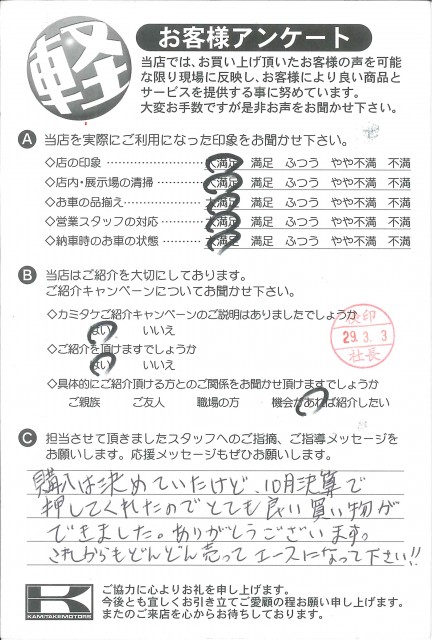 軽
お客様アンケート
当店では、お買い上げ頂いたお客様の声を可能
な限り現場に反映し、お客様により良い商品と
サービスを提供する事に努めています。
大変お手数ですが是非お声をお聞かせ下さい。
A 当店を実際にご利用になった印象をお聞かせ下さい。
◇店の印象 大満足 満足 ふつう やや不満 不満
◇店内・展示場の清掃 大満足 満足 ふつう やや不満 不満
◇お車の品揃え 大満足 満足 ふつう やや不満 不満
◇営業スタッフの対応 大満足 満足 ふつう やや不満 不満
◇納車時のお車の状態 大満足 満足 ふつう やや不満 不満
B 当店はご紹介を大切にしております。
ご紹介キャンペーンについてお聞かせ下さい。
◇カミタケご紹介キャンペーンのご説明はありましたでしょうか
はい いいえ
◇ご紹介を頂けますでしょうか
はい いいえ
◇具体的にご紹介頂ける方とのご関係をお聞かせ頂けますでしょうか
ご親族 ご友人 職場の方 機会があれば紹介したい
決印
29.3.3
社長
C 担当させて頂きましたスタッフへのご指摘、ご指導メッセージを
お願いします。応援メッセージもぜひお願いします。
購入は決めていたけど、10月決算で
押してくれたのでとても良い買い物が
できました。ありがとうございます。
これからもどんどん売ってエースになって下さい!!
K
KAMITAKEMOTORS
ご協力に心よりお礼を申し上げます。
今後とも宜しくお引き立てご愛顧の程お願い申し上げます。
またのご来店を心からお待ちしております。